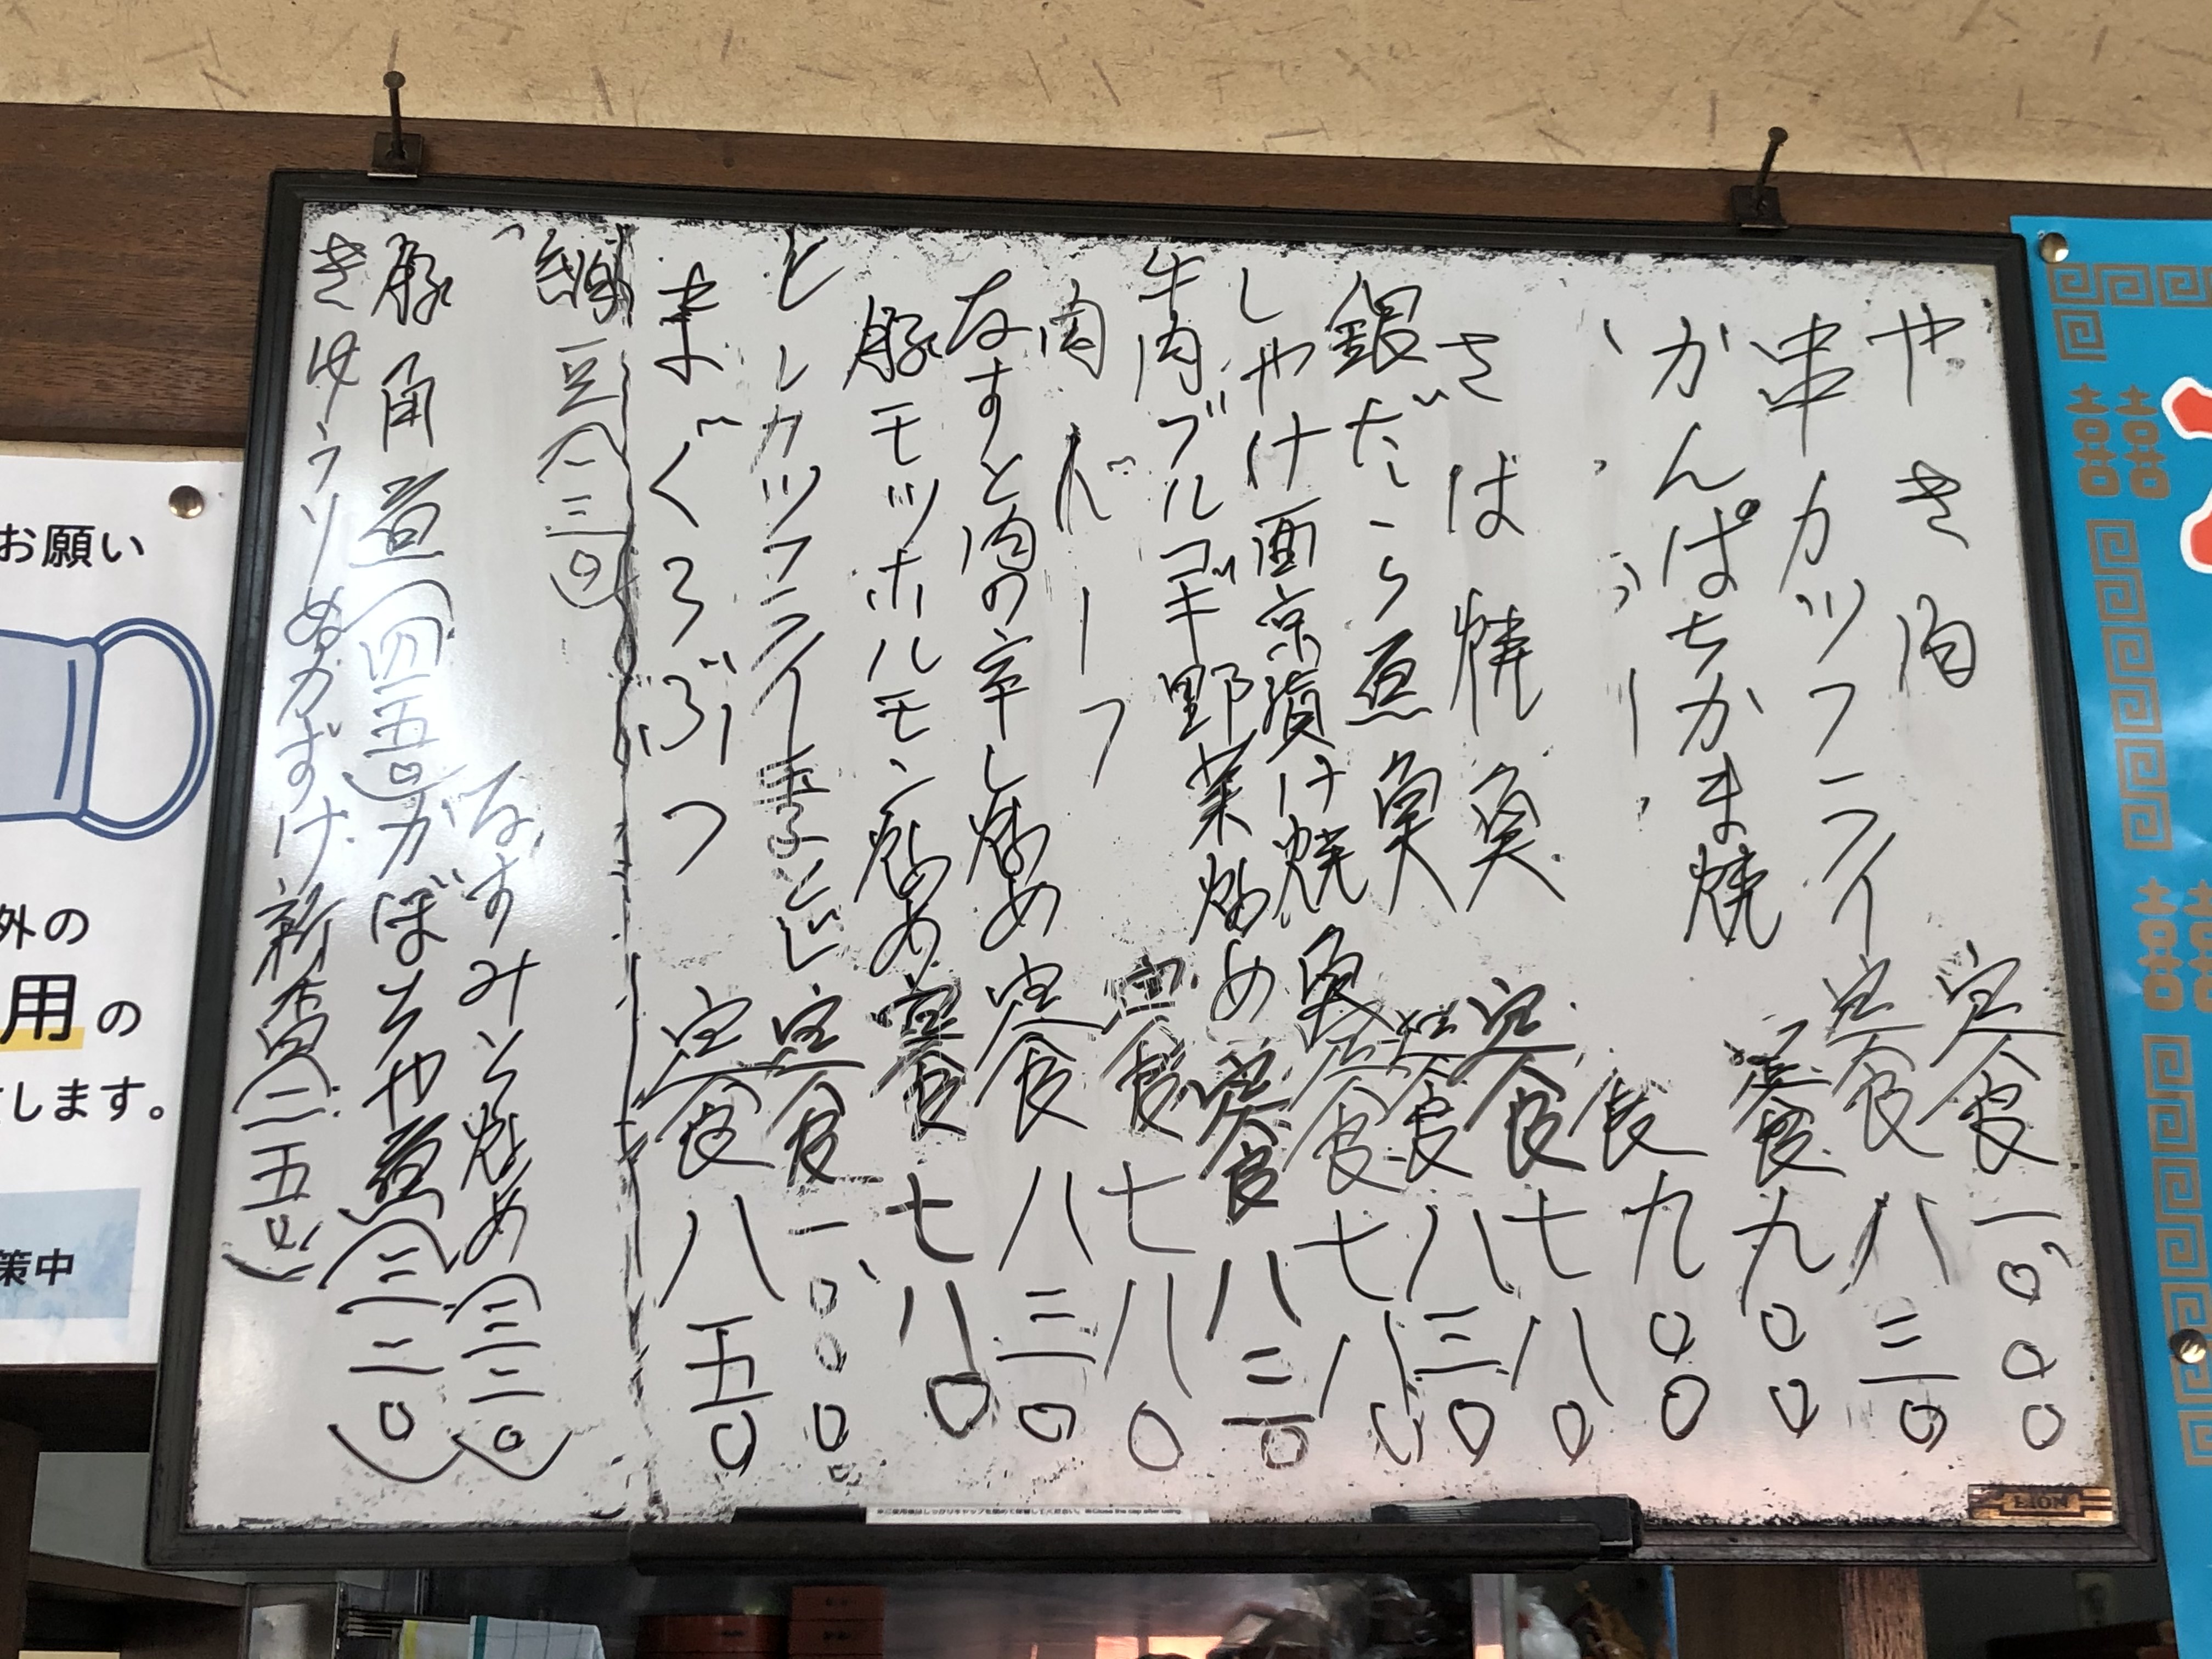 やき肉 定食 一、〇〇〇
串カツフライ 定食 八三〇
かんぱちかま焼 定食 九〇〇
〃 〃 〃 食 九〇〇
さば焼魚 定食 七八〇
銀だら煮魚 定食 八三〇
しゃけ西京漬け焼魚 定食 七八〇
牛肉プルコギ野菜炒め 定食 八三〇
肉どーふ 定食 七八〇
なすと肉の辛し炒め 定食 八三〇
豚モツホルモン炒め 定食 七八〇
ヒレカツフライ 定食 一、〇〇〇
まぐろぶつ 定食 八五〇
納豆(一三〇)
なすみそ炒め(三二〇)
豚角煮(四五〇)かぼちゃ煮(三二〇)
きゅうりぬかずけ新香(二五〇)
LION
お願い
外の
用の
します。
策中